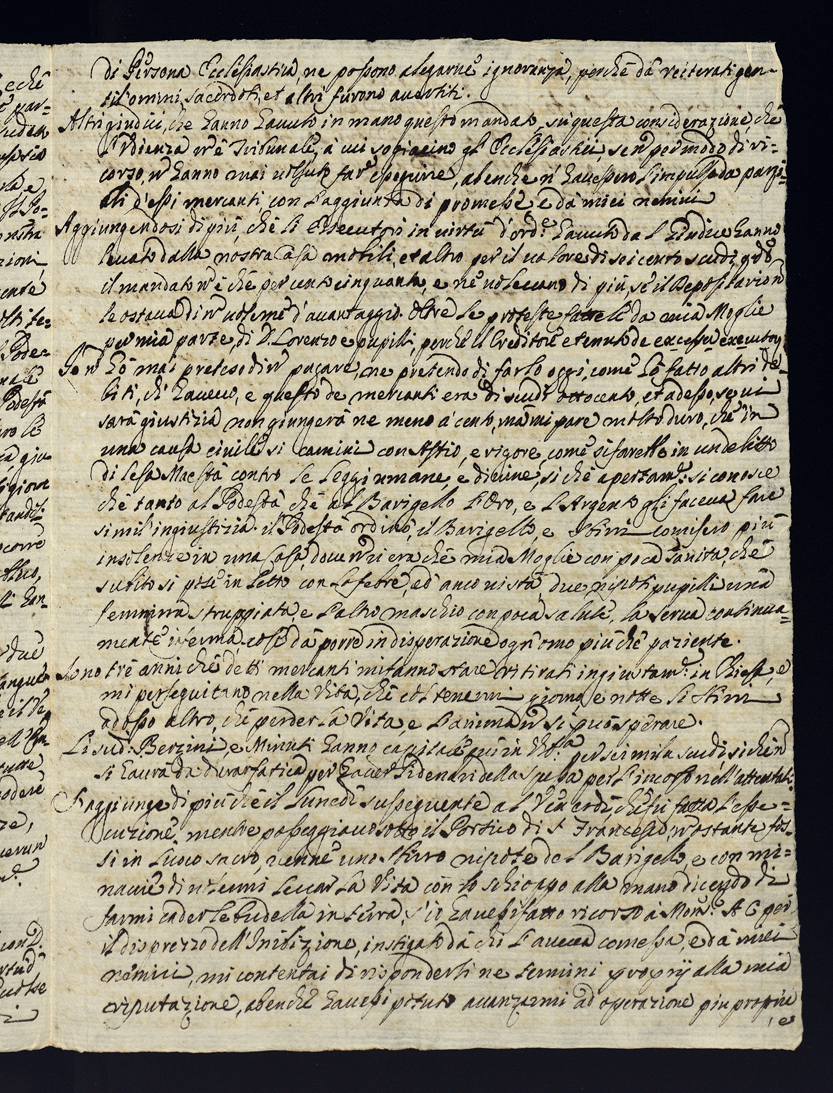 di Persona Ecclesiastica, ne possono alegarne ignoranza, perchè da reiterati gen-
til'omini, sacerdoti, et altri furono avertiti.
Altri giudici, che hanno havuto in mano questo mandato, su questa considerazione, che
l'Udienza n'è Tribunale, a cui sogiacino gl'Ecclesiastici, se nō per modo di ri-
corso, nō hanno mai voluto far esseguire, abenchè nō havessero l'impulso da parzi-
ali d'essi mercanti con l'aggiunta di promesse, e da miei nemici
Aggiungendosi di più, che li Essecutori in virtù d'ord.e havuto dal Giudice hanno
levato dalla nostra Casa mobili, et altro per il valore di seicento scudi, qdo
il mandato n'è che per cento cinquanta, e ne volevano di più, se il Depositario nō
le ostava di nō volerne d'avantaggio. Oltre le proteste fatteli da mia Moglie
per mia parte, di D. Lorenzo e pupilli, perchè il Creditore è tenuto de excessu executor
Io nō hò mai preteso di nō pagare, ne pretendo di farlo oggi, come l'hò fatto altri de-
biti, ch'havevo, e questo de mercanti era di scudi ottocento, et adesso, se vi
sarà giustizia non giungerà ne meno a cento, mà mi pare molto duro, che in
una causa civile si camini con Astio, e rigore, come si farebbe in un delitto
di lesa Maestà contro le leggi umane, e divine, si che apertam.e si conosce
che tanto al Podestà, che al Barigello l'Oro, e l'Argento gli faceva fare
simil'ingiustizia, il Podestà ordinò, il Barigello, e Sbirri comisero più
insolenze in una Casa, dove nō ci era che mia Moglie con poca sanità, che
subito si pose in letto con la febre, ed anco vi stà, due nipoti pupilli unà
femmina struppiata, e l'altro maschio con poca salute, la serva continua-
mente inferma, cosa da porre in disperazione ogn'omo più che paziente.
Sono trè anni che detti mercanti mi fanno stare ritirati ingiustam.e in Chiesa, e
mi perseguitano nella Vita, che col tenermi giorno, e notte li Sbirri
adosso altro, che perder la Vita, e l'anima nō si può sperare.
Li sud.i Berzini, e Minuti hanno capitale qui in per sei mila scudi, si che nō
si havrà da durar fatica per haver li denari della spesa per l'incorso nell'attentato.
S'aggiunge di più che il Lunedì susseguente al Venerdì, che fu fatta l'esse-
cuzione, mentre passeggiavo sotto il Portico di S. Francesco, nō ostante fos-
si in luoco sacro, venne uno Sbirro nipote del Barigello, e con mi-
naccie di volermi leccar la Vita con lo schioppo alla mano dicendo di
farmi cader le budella in terra, s'io havessi fatto ricorso à Mons.r A C per
il disprezzo dell'Inibizione, instigato da chi l'aveva comessa, ed à miei
nemici, mi contentai di risponderli ne termini proprij alla mia
reputazione, abenchè havessi potuto avanzarmi ad operazione più propria
e